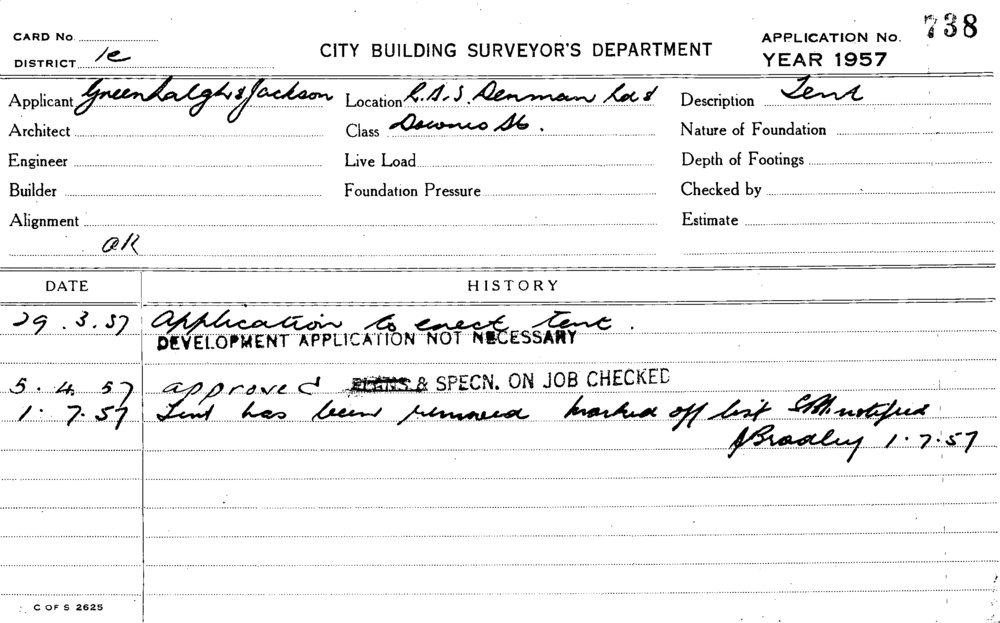 CARD No.
DISTRICT 1e
CITY BUILDING SURVEYOR'S DEPARTMENT
APPLICATION No. 738
YEAR 1957
Applicant Greenhalgh & Jackson Location R.A.S. Denman Rd & Description Tent
Architect Class Downes St. Nature of Foundation
Engineer Live Load Depth of Footings
Builder Foundation Pressure Checked by
Alignment Estimate
OK
DATE HISTORY
29.3.57 Application to erect tent.
DEVELOPMENT APPLICATION NOT NECESSARY
5.4.57 approved PLANS & SPECN. ON JOB CHECKED
1.7.57 Tent has been removed marked off list notified
JBradley 1.7.57
C OF S 2625